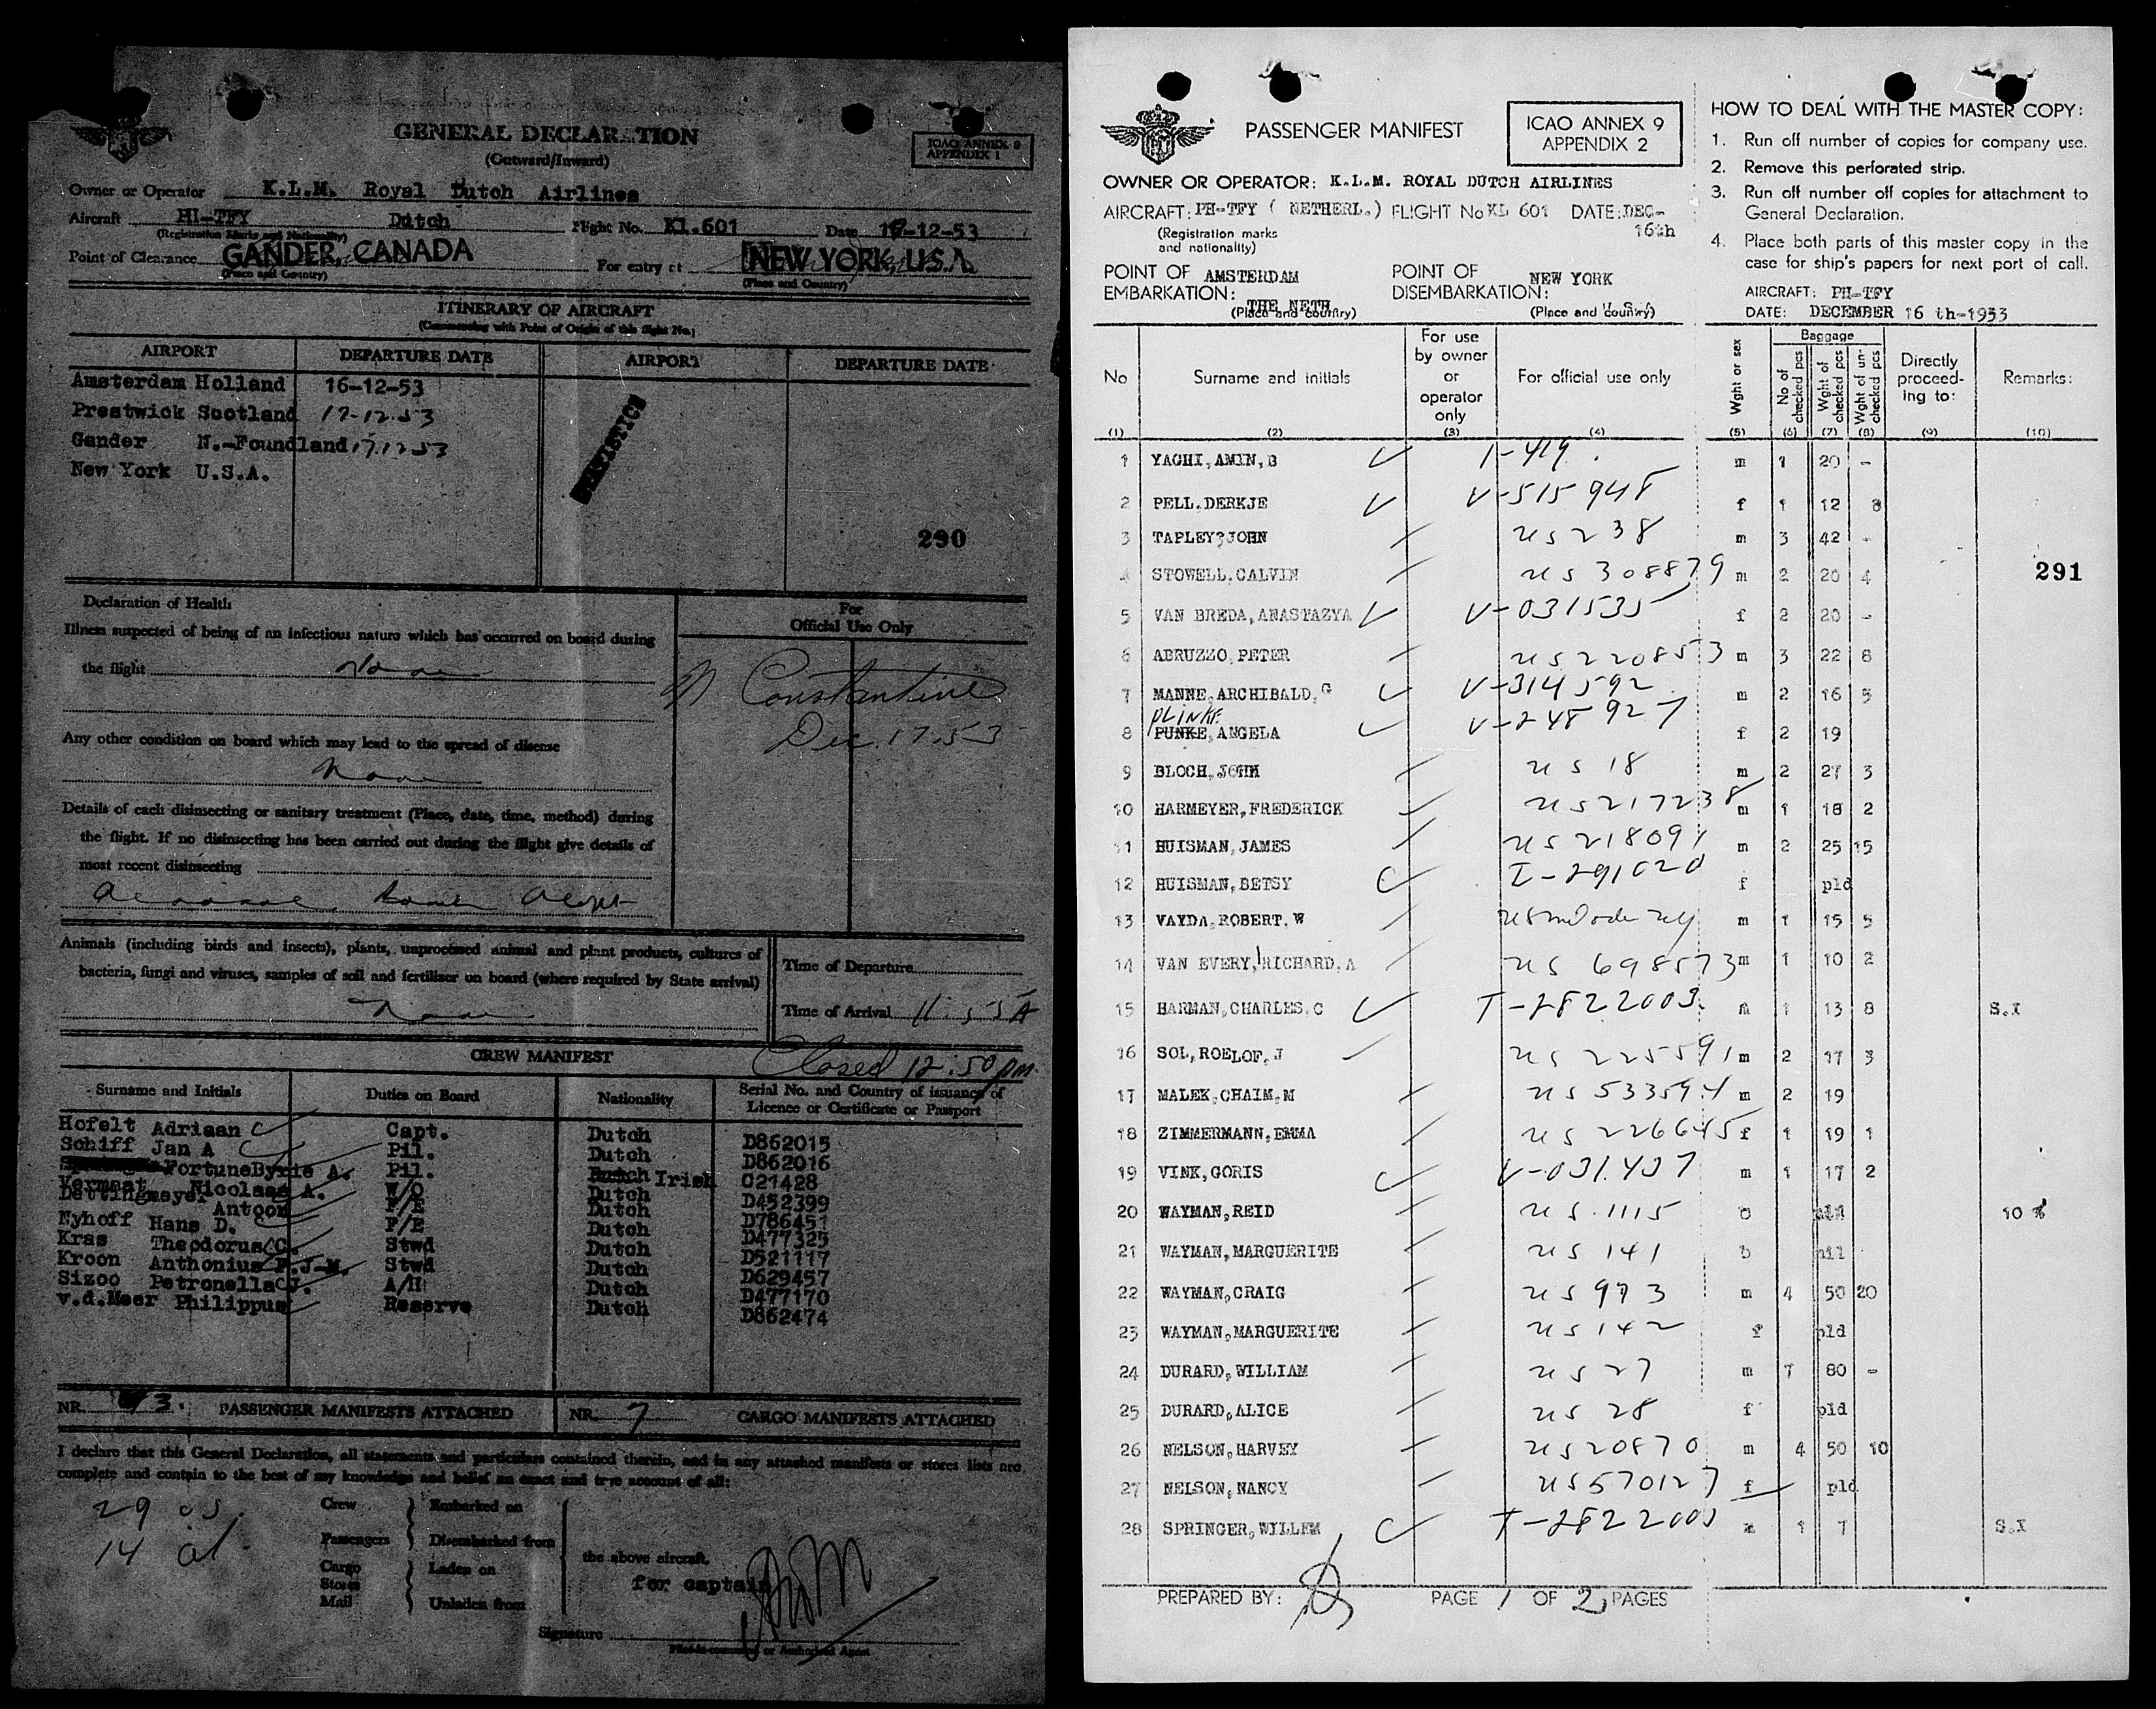 GENERAL DECLARATION
(Outward/Inward)
ICAO ANNEX 9
APPENDIX 1
Owner or Operator K.L.M. Royal Dutch Airlines
Aircraft HI-TFY Dutch Flight No. KL.601 Date 12-53
(Registration Marks and Nationality)
Point of Clearance GANDER, CANADA For entry at NEW YORK, U.S.A.
(Place and Country) (Place and Country)
ITINERARY OF AIRCRAFT
(Commencing with Point of Origin of this flight No.)
AIRPORT DEPARTURE DATE AIRPORT DEPARTURE DATE
Amsterdam Holland 16-12-53
Prestwick Scotland 17-12-53
Gander N.-Foundland 17.12.53
New York U.S.A.
STATISTICS
290
Declaration of Health
For
Official Use Only
Illness suspected of being of an infectious nature which has occurred on board during
the flight None
Constantine
Dec. 17.53
Any other condition on board which may lead to the spread of disease
None
Details of each disinsecting or sanitary treatment (Place, date, time, method) during
the flight. If no disinsecting has been carried out during the flight give details of
most recent disinsecting
Animals (including birds and insects), plants, unprocessed animal and plant products, cultures of
bacteria, fungi and viruses, samples of soil and fertiliser on board (where required by State arrival)
None
Time of Departure
Time of Arrival 11.55 A
Closed 12:50 pm.
CREW MANIFEST
Surname and Initials Duties on Board Nationality Serial No. and Country of issuance of
Licence or Certificate or Passport
Hofelt Adriaan Capt. Dutch D862015
Schiff Jan A Pil. Dutch D862016
FortuneByrie A. Pil. Irish 021428
Vermaat Nicolaas A. W/O Dutch D452399
Dettingmeyer Antoon F/E Dutch D786451
Nyhoff Hans D. F/E Dutch D477325
Kras Theodorus C. Stwd Dutch D521117
Kroon Anthonius P.J.M. Stwd Dutch D629457
Sizoo Petronella J. A/H Dutch D477170
v.d.Meer Philippus Reserve Dutch D862474
NR. 3. PASSENGER MANIFESTS ATTACHED NR. 7 CARGO MANIFESTS ATTACHED
I declare that this General Declaration, all statements and particulars contained therein, and in any attached manifests or stores lists are
complete and contain to the best of my knowledge and belief an exact and true account of all:
29 cs.
14 al.
Crew Embarked on
Passengers Disembarked from
Cargo Laden on
Stores
Mail Unladen from
the above aircraft.
for captain
Signature
Pilot-in-command or Authorised Agent
PASSENGER MANIFEST
ICAO ANNEX 9
APPENDIX 2
OWNER OR OPERATOR: K.L.M. ROYAL DUTCH AIRLINES
AIRCRAFT: PH-TFY ( NETHERL.) FLIGHT No KL 601 DATE: DEC-
16th
(Registration marks
and nationality)
POINT OF EMBARKATION: AMSTERDAM THE NETH
(Place and country)
POINT OF DISEMBARKATION: NEW YORK U.S.A
(Place and country)
HOW TO DEAL WITH THE MASTER COPY:
1. Run off number of copies for company use.
2. Remove this perforated strip.
3. Run off number off copies for attachment to
General Declaration.
4. Place both parts of this master copy in the
case for ship's papers for next port of call.
AIRCRAFT: PH-TFY
DATE: DECEMBER 16 th-1953
No Surname and initials For use by owner or operator only For official use only Wght or sex Baggage No of checked pcs Wght of checked pcs Wght of un-checked pcs Directly proceed-ing to: Remarks:
(1) (2) (3) (4) (5) (6) (7) (8) (9) (10)
1 YAGHI, AMIN, B I-419. m 1 20 -
2 PELL. DERKJE V-515948 f 1 12 8
3 TAPLEY?JOHN US 238 m 3 42 -
4 STOWELL, CALVIN US 308879 m 2 20 4
291
5 VAN BREDA, ANASTAZYA V-031535 f 2 20 -
6 ABRUZZO, PETER US220853 m 3 22 8
7 MANNE, ARCHIBALD, G V-314592 m 2 16 5
PLINKE
8 PUNKE, ANGELA V-248927 f 2 19
9 BLOCH, JOHN US 18 m 2 27 3
10 HARMEYER, FREDERICK US217238 m 1 18 2
11 HUISMAN, JAMES US 218091 m 2 25 15
12 HUISMAN, BETSY I-291020 f pld
13 VAYDA, ROBERT. W m 1 15 5
14 VAN EVERY, RICHARD, A US 698573 m 1 10 2
15 HARMAN, CHARLES, C T-2822003 m 1 13 8 S.I
16 SOL, ROELOF, J US 225591 m 2 17 3
17 MALEK, CHAIM, M US 533594 m 2 19
18 ZIMMERMANN, EMMA US 226645 f 1 19 1
19 VINK, GORIS V-031.437 m 1 17 2
20 WAYMAN, REID US.1115 10 %
21 WAYMAN, MARGUERITE US 141 b nil
22 WAYMAN, CRAIG US 973 m 4 50 20
23 WAYMAN, MARGUERITE US 142 f pld
24 DURARD, WILLIAM US 27 m 7 80 -
25 DURARD, ALICE US 28 f pld
26 NELSON, HARVEY US20870 m 4 50 10
27 NELSON, NANCY US570127 f pld
28 SPRINGER, WILLEM T-2822003 m 1 7 S.I
PREPARED BY: PAGE 1 OF 2 PAGES